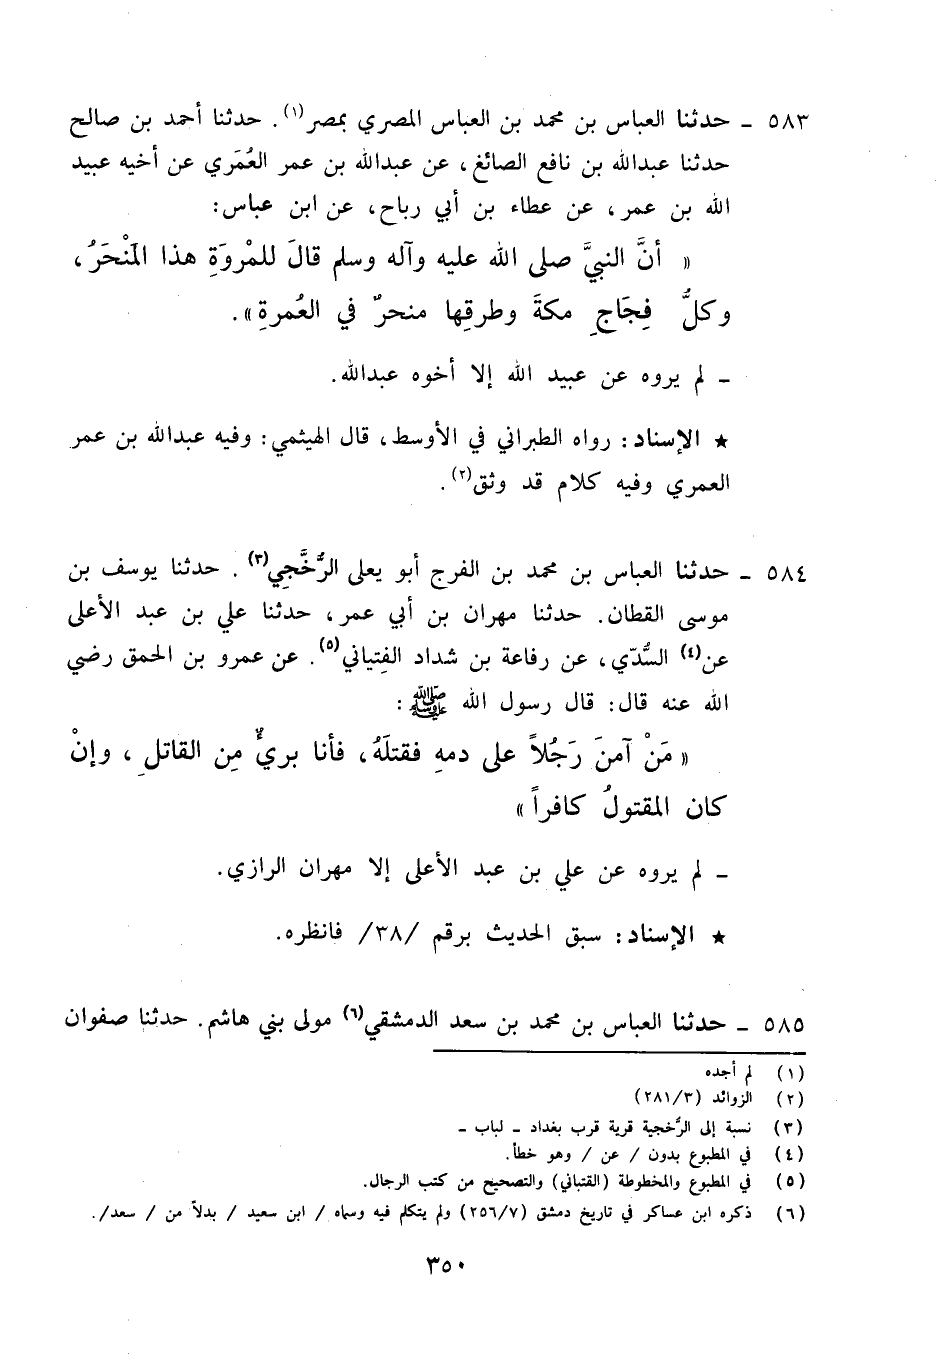 ٥٨٣ - حدثنا العباس بن محمد بن العباس المصري بمصر(١). حدثنا أحمد بن صالح
حدثنا عبدالله بن نافع الصائغ، عن عبدالله بن عمر العُمَري عن أخيه عبيد
الله بن عمر، عن عطاء بن أبي رباح، عن ابن عباس:
« أنَّ النبيَّ صلى الله عليه وآله وسلم قالَ للمْروَةِ هذا المْنْحَرُ،
وكلُّ فِجَاجِ مكةَ وطرقِها منحرٌ في العُمرةِ».
- لم يروه عن عبيد الله إلا أخوه عبدالله.
★ الإسناد: رواه الطبراني في الأوسط، قال الهيثمي: وفيه عبدالله بن عمر
العمري وفيه كلام قد وثق(٢).
٥٨٤ - حدثنا العباس بن محمد بن الفرج أبو يعلى الرُّخَّجِي(٣). حدثنا يوسف بن
موسى القطان. حدثنا مهران بن أبي عمر، حدثنا علي بن عبد الأعلى
عن(٤) السُّدّي، عن رفاعة بن شداد الفِتياني(٥). عن عمرو بن الحمق رضي
الله عنه قال: قال رسول الله ﷺ:
« مَنْ آمنَ رَجُلاً على دمهِ فقتلَهُ، فأنا بريٌ مِن القاتلِ، وإنْ
كان المقتولُ كافراً »
- لم يروه عن علي بن عبد الأعلى إلا مهران الرازي.
★ الإسناد: سبق الحديث برقم /٣٨/ فانظره.
٥٨٥ - حدثنا العباس بن محمد بن سعد الدمشقي(٦) مولى بني هاشم. حدثنا صفوان
(١) لم أجده
(٢) الزوائد (٢٨١/٣)
(٣) نسبة إلى الرُّخجية قرية قرب بغداد - لباب -
(٤) في المطبوع بدون / عن / وهو خطأ.
(٥) في المطبوع والمخطوطة (القتباني) والتصحيح من كتب الرجال.
(٦) ذكره ابن عساكر في تاريخ دمشق (٢٥٦/٧) ولم يتكلم فيه وسماه / ابن سعيد / بدلاً من / سعد/.
٣٥٠